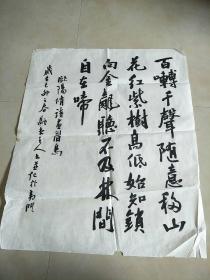 百啭千聲随意移山
花红紫樹高低始知鎖
向金籠聽不及林間
自在啼
歐陽脩詩畫眉鳥
歲在己卯之春